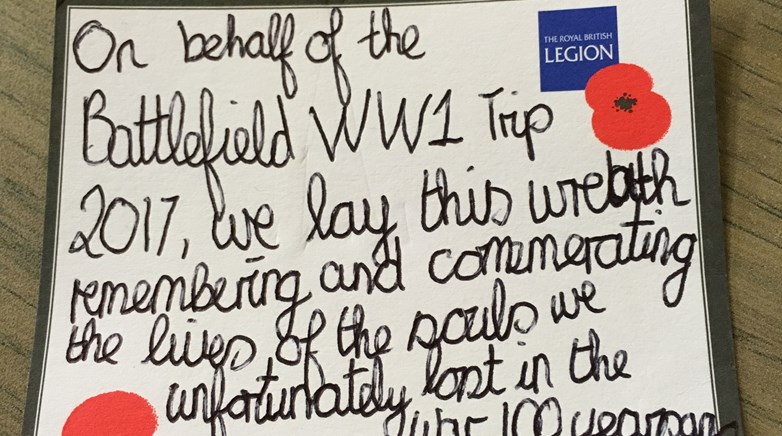 On behalf of the
THE ROYAL BRITISH
LEGION
Battlefield WW1 Trip
2017, we lay this wreath
remembering and commerating
the lives of the souls we
unfortunately lost in the
war 100 years